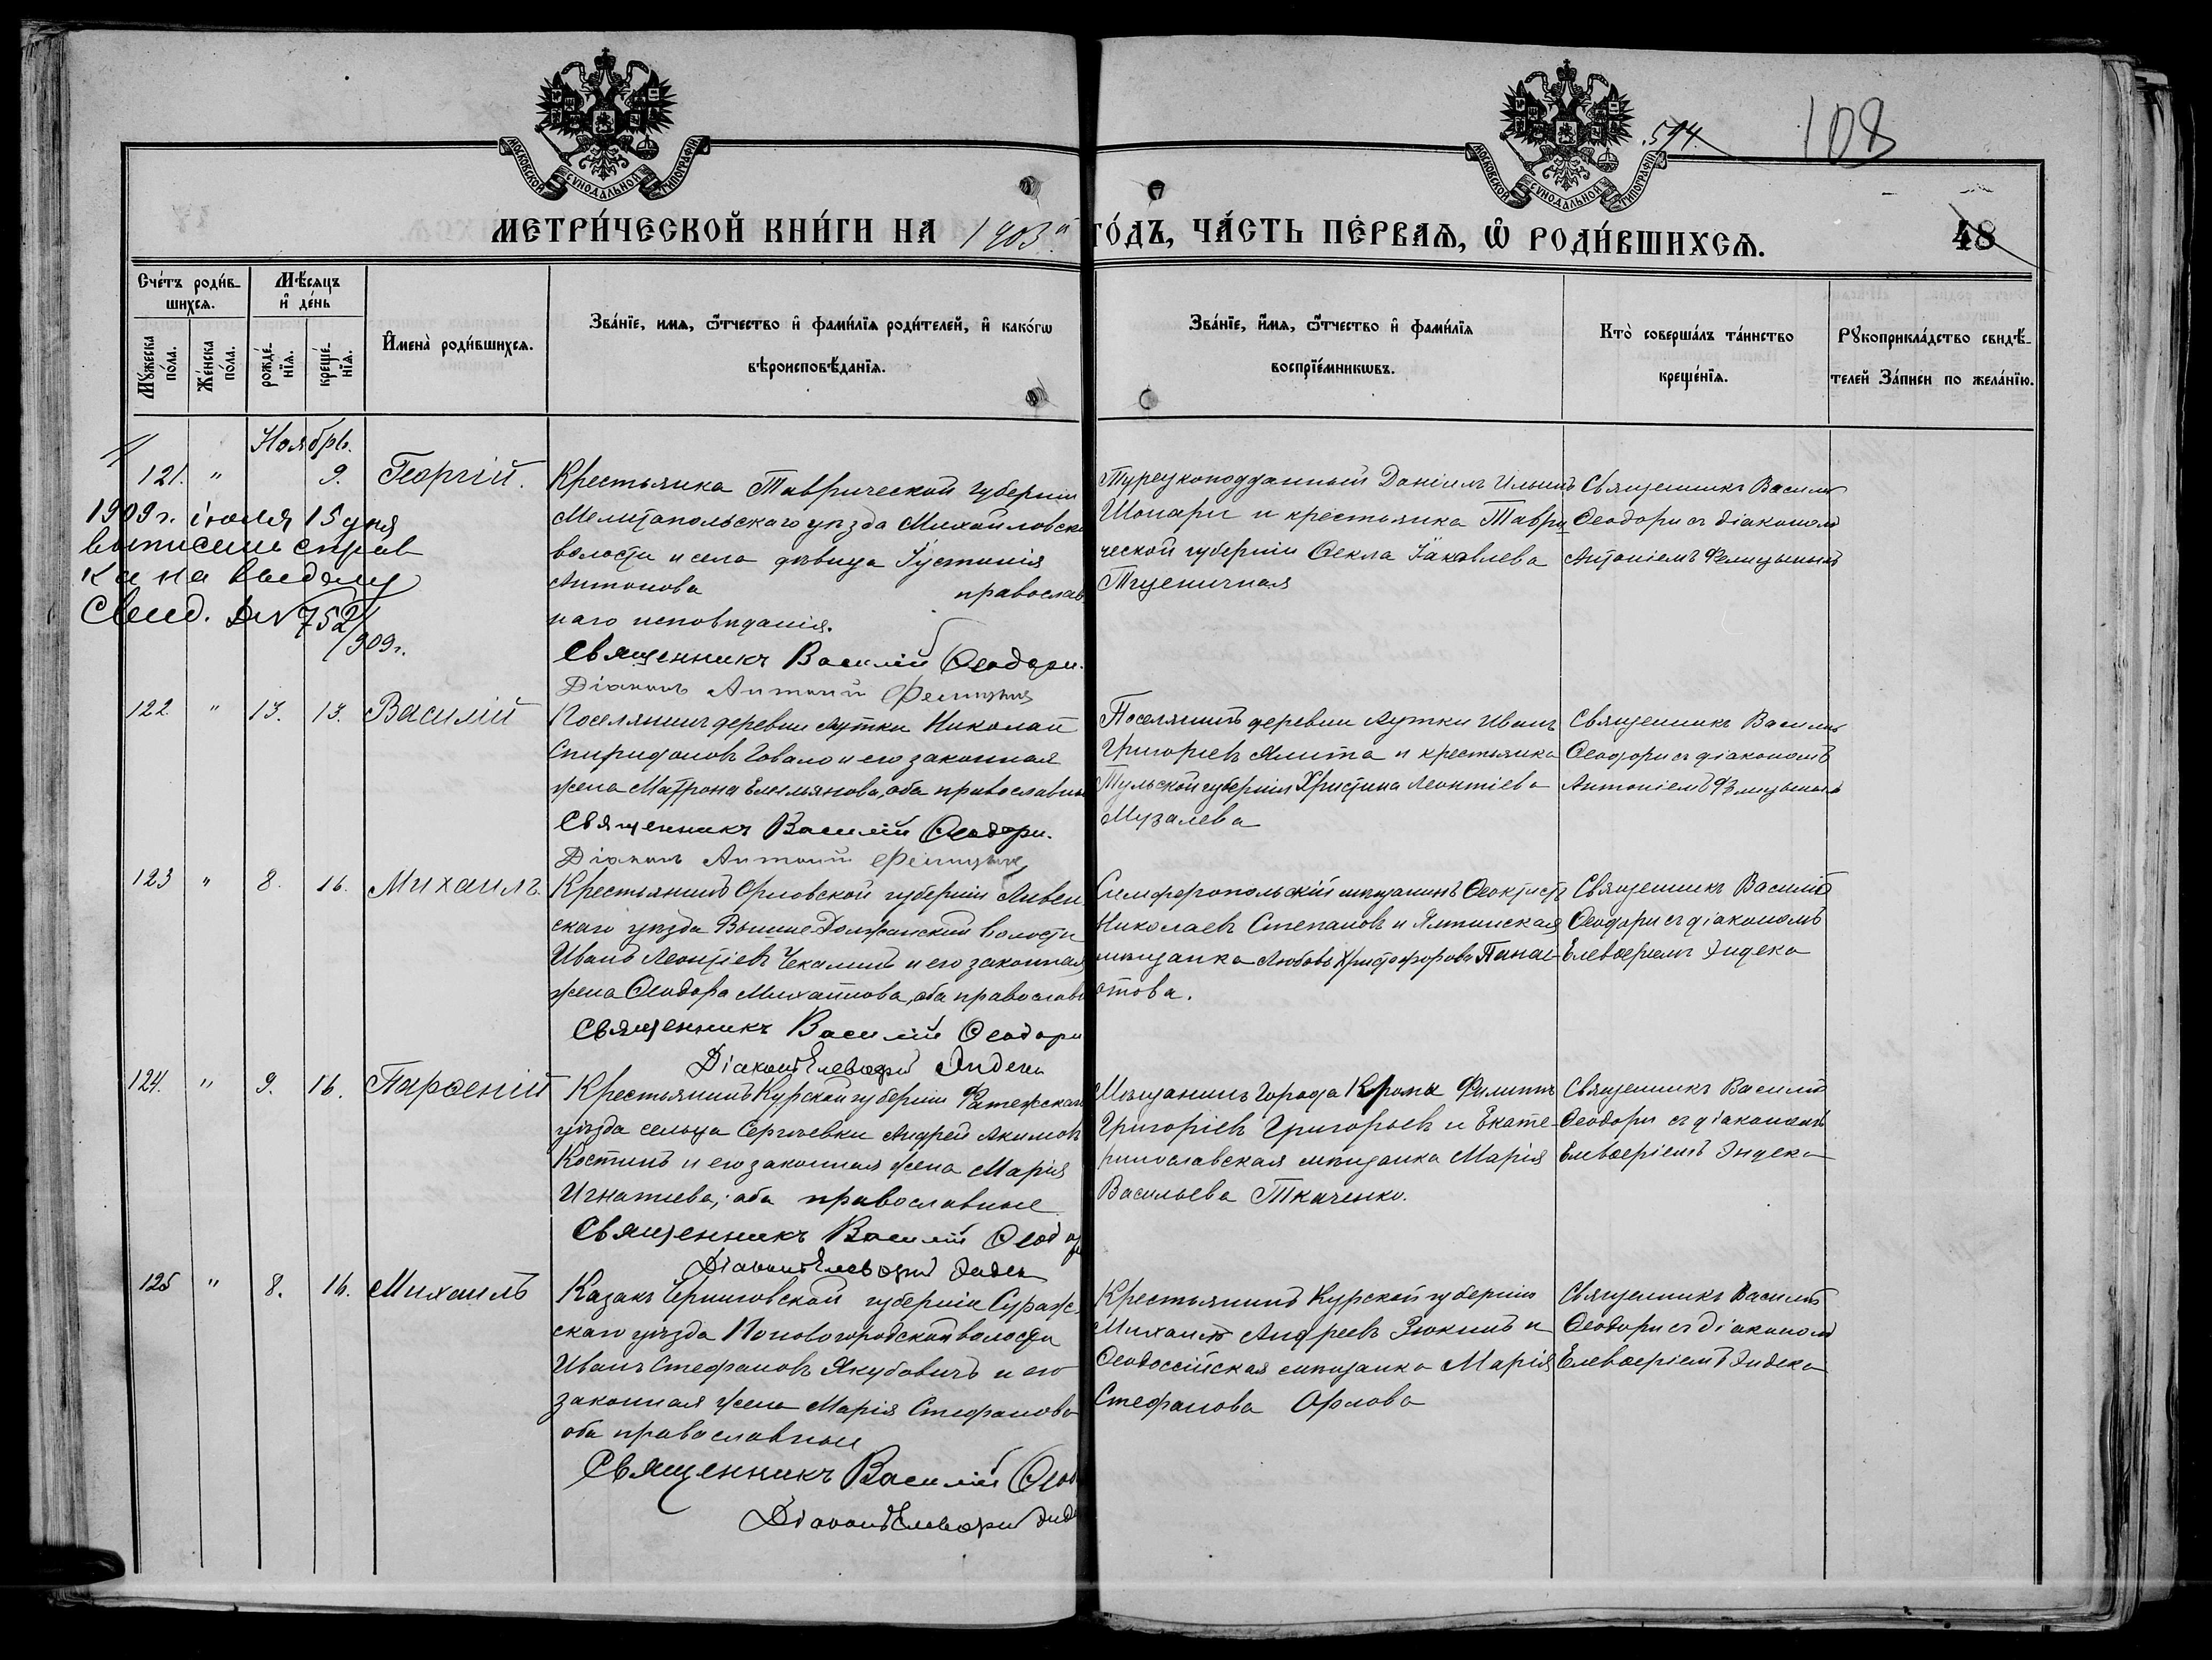 МОСКОВСКОЙ СѴНОДАЛЬНОЙ ТИПОГРАФІИ
МОСКОВСКОЙ СѴНОДАЛЬНОЙ ТИПОГРАФІИ
574.
108
МЕТРИ́ЧЕСКОЙ КНИ́ГИ НА 1903й ГО́ДЪ, ЧА́СТЬ ПЕ́РВАѦ, Ѡ РОДИ́ВШИХСѦ.
48
Сче́тъ роди́в-
шихсѧ.
Мѣ́сѧцъ
и҆ де́нь
Мꙋ́жеска по́ла.
Же́нска по́ла.
рожде́нїѧ.
креще́нїѧ.
И҆мена̀ роди́вшихсѧ.
Зва́нїе, имѧ, ѿтчество и҆ фами́лїѧ роди́телей, и҆ како́гѡ
вѣроисповѣ́данїѧ.
Зва́нїе, и҆́мѧ, ѿтчество и҆ фами́лїѧ
воспрїе́мникѡвъ.
Кто̀ соверша́лъ та́инство
креще́нїѧ.
Рꙋкоприкла́дство свидѣ́-
телей За́писи по жела́нїю.
Ноябрь.
121. " 9. Георгій.
Крестьянка Таврической губерніи
Мелитопольскаго уѣзда Михайловско
волости и села дѣвица Іустинія
Антонова православ
наго исповѣданія.
Священникъ Василій Ѳеодори.
Діаконъ Антоній
Турецкоподданный Даніилъ Ильинъ
Шопари и крестьянка Таври
ческой губерніи Ѳекла Іаковлева
Пшеничная
Священникъ Василій
Ѳеодори съ діакономъ
Антоніемъ
1909 г. іюля 15 дня
выписана справ
ка на выдачу
Свид. № 752/
909 г.
122. " 13. 13. Василій
Поселянинъ деревни Аутки Николай
Спиридоновъ Говало и его законная
жена Матрона Емельянова, оба православны
Священникъ Василій Ѳеодори.
Діаконъ Антоній
Поселянинъ деревни Аутки Иванъ
Григорьевъ Ялита и крестьянка
Тульской губерніи Христина Леонтіева
Музалева
Священникъ Василій
Ѳеодори съ діакономъ
Антоніемъ
123 " 8. 16. Михаилъ.
Крестьянинъ Орловской губерніи Ливен
скаго уѣзда Вышне-Должанской волости
Иванъ Леонтіевъ Чекалинъ и его законная
жена Ѳеодора Михайлова, оба православн
Священникъ Василій Ѳеодори
Діаконъ Елевѳерій Эндека
Симферопольскій мѣщанинъ Ѳеоктистъ
Николаевъ Степановъ и Ялтинская
мѣщанка Любовь Христофорова Панаі-
отова.
Священникъ Василій
Ѳеодори съ діакономъ
Елевѳеріемъ Эндека
124. " 9. 16. Парѳеній
Крестьянинъ Курской губерніи Фатежскаго
уѣзда сельца Сергѣевки Андрей Акимовъ
Костинъ и его законная жена Марія
Игнатиева, оба православные
Священникъ Василій Ѳеодор
Діаконъ Елевѳерій Эндека
Мѣщанинъ города Кромы Филиппъ
Григоріевъ Григорьевъ и Екате-
ринославская мѣщанка Марія
Васильева Ткаченко.
Священникъ Василій
Ѳеодори съ діакономъ
Елевѳеріемъ Эндека
125 " 8. 16. Михаилъ
Казакъ Черниговской губерніи Сураж-
скаго уѣзда Поповогородской волости
Иванъ Стефановъ Якубовичъ и его
законная жена Марія Стефанова
оба православные
Священникъ Василій Ѳеод
Діаконъ Елевѳерій Энде
Крестьянинъ Курской губерніи
Михаилъ Андреевъ Зюкинъ и
Ѳеодосійская мѣщанка Марія
Стефанова Орлова
Священникъ Василій
Ѳеодори съ діакономъ
Елевѳеріемъ Эндека